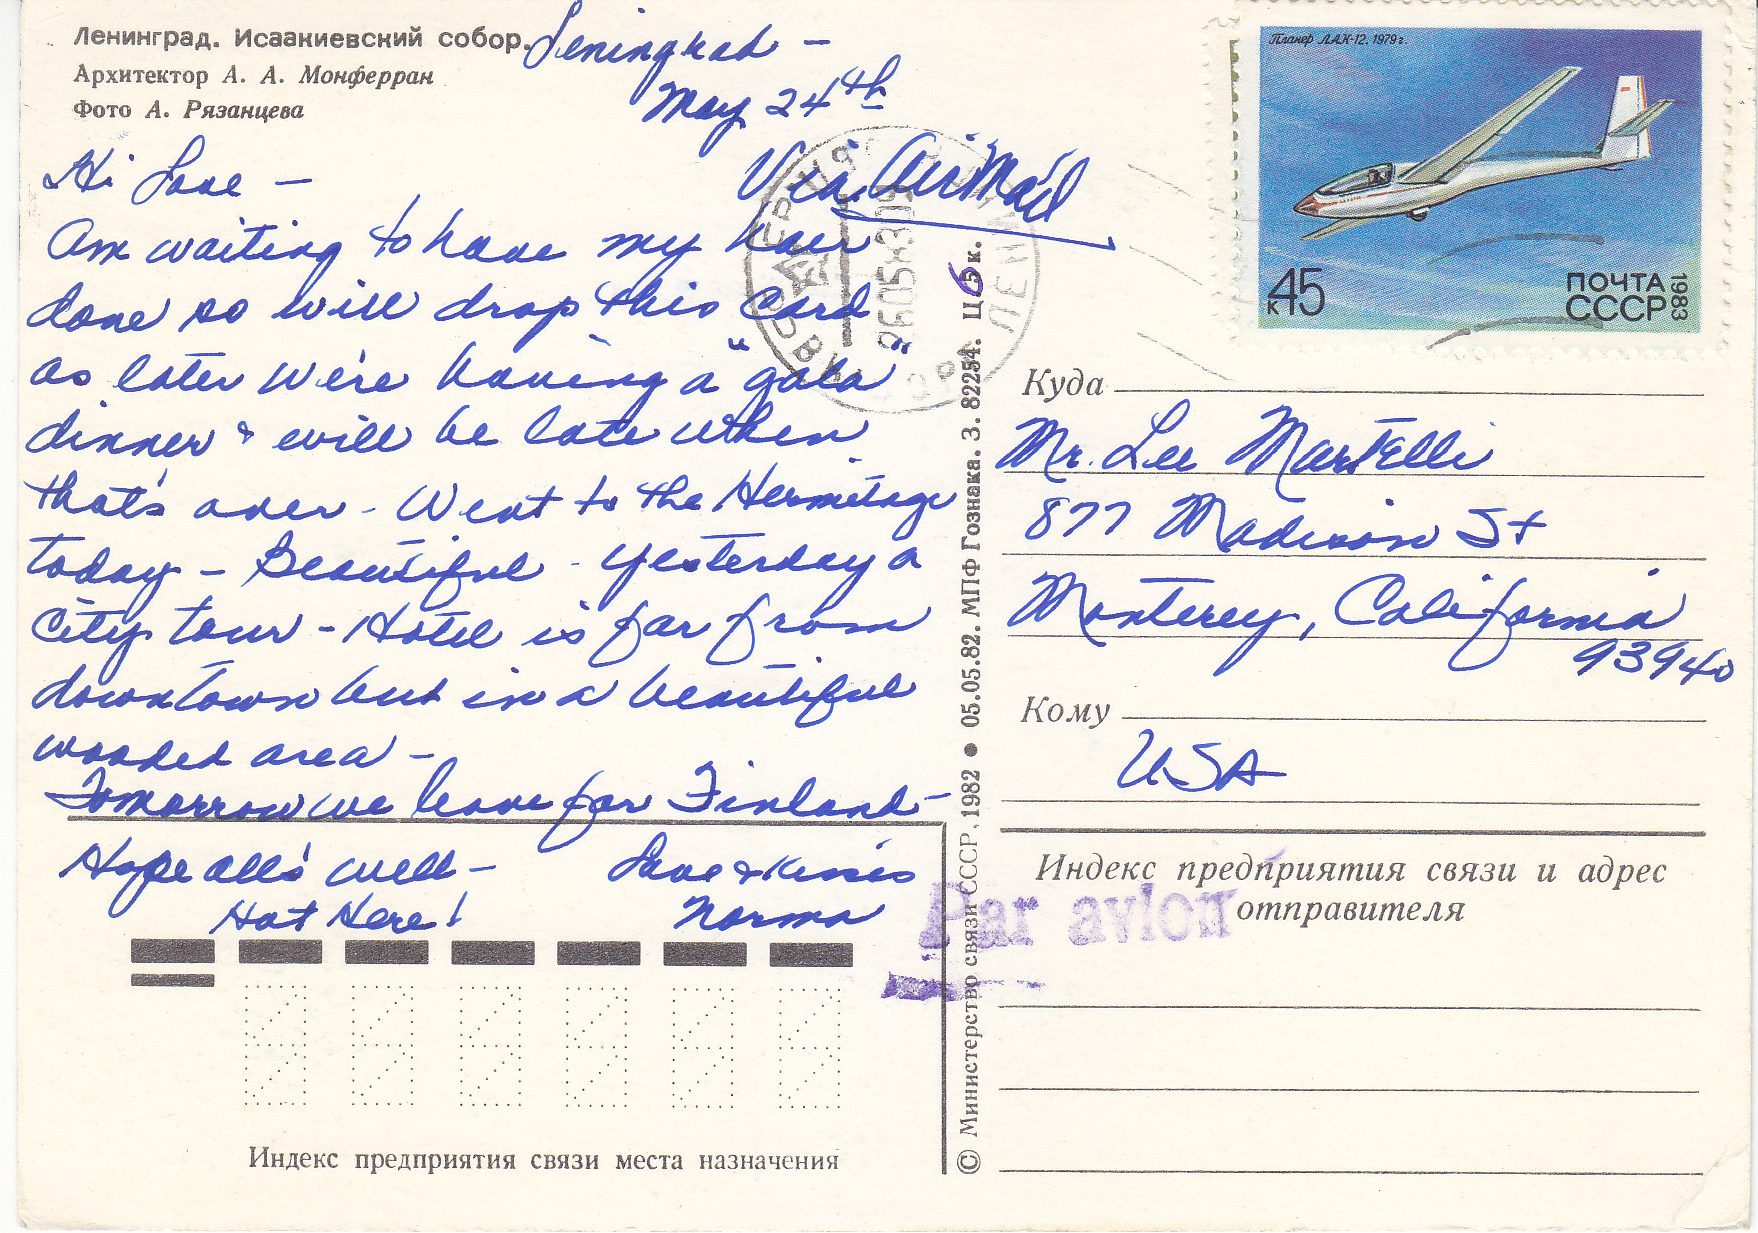 Ленинград. Исаакиевский собор.
Архитектор А. А. Монферран
Фото А. Рязанцева
Leningrad –
May 24th
Via AirMail
Hi Love –
Am waiting to have my hair
done so will drop this card
as later we're having a "gala"
dinner & will be late when
that's over - Went to the Hermitage
today – Beautiful - yesterday a
City tour – Hotel is far from
downtown but in a beautiful
wooded area –
Tomorrow we leave for Finland –
Hope all's well –
Hot Here!
Love & Kisses
Norma
Индекс предприятия связи места назначения
© Министерство связи СССР, 1982 ● 05.05.82. МПФ Гознака. З. 82254. Ц 6 к.
Планер ЛАК-12. 1979 г.
к45
ПОЧТА
СССР
1983
Куда
Mr. Lee Martelli
877 Madison St
Monterey, California
93940
Кому
USA
Индекс предприятия связи и адрес
отправителя
Par avion